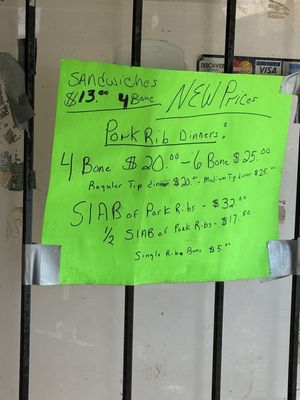 DISCOVER
VISA
SANdwiches
$13.00 4 Bone
NEW Prices
Pork Rib Dinners!
4 Bone $20.00 - 6 Bone $25.00
Regular Tip dinner $20.00 - Medium Tip Dinner $25.00
SlAB of Pork Ribs - $32.00
1/2 SlAB of Pork Ribs - $17.50
Single Rib Bone $5.00